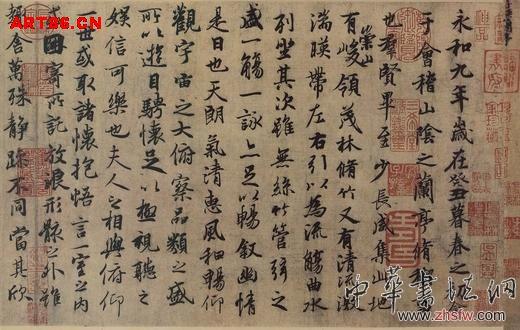 永和九年歲在癸丑暮春之初會
于會稽山陰之蘭亭脩稧
也羣賢畢至少長咸集此地
有崇山峻領茂林脩竹又有清流激
湍暎帶左右引以為流觴曲水
列坐其次雖無絲竹管弦之
盛一觴一詠亦足以暢敘幽情
是日也天朗氣清惠風和暢仰
觀宇宙之大俯察品類之盛
所以遊目騁懷足以極視聽之
娛信可樂也夫人之相與俯仰
一世或取諸懷抱悟言一室之內
或因寄所託放浪形骸之外雖
趣舍萬殊靜躁不同當其欣
ART86.CN
中華書法网
www.zhsfw.com